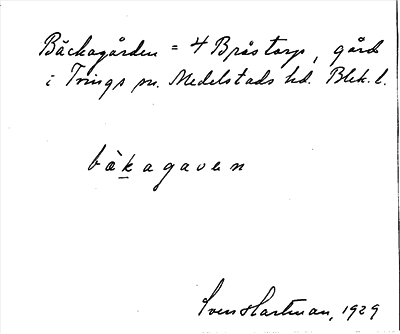 Bäckagården = 4 Bråstorp, gård
i Tvings sn. Medelstads hd. Blek. l.
bàkagaven
Sven Hartman, 1929